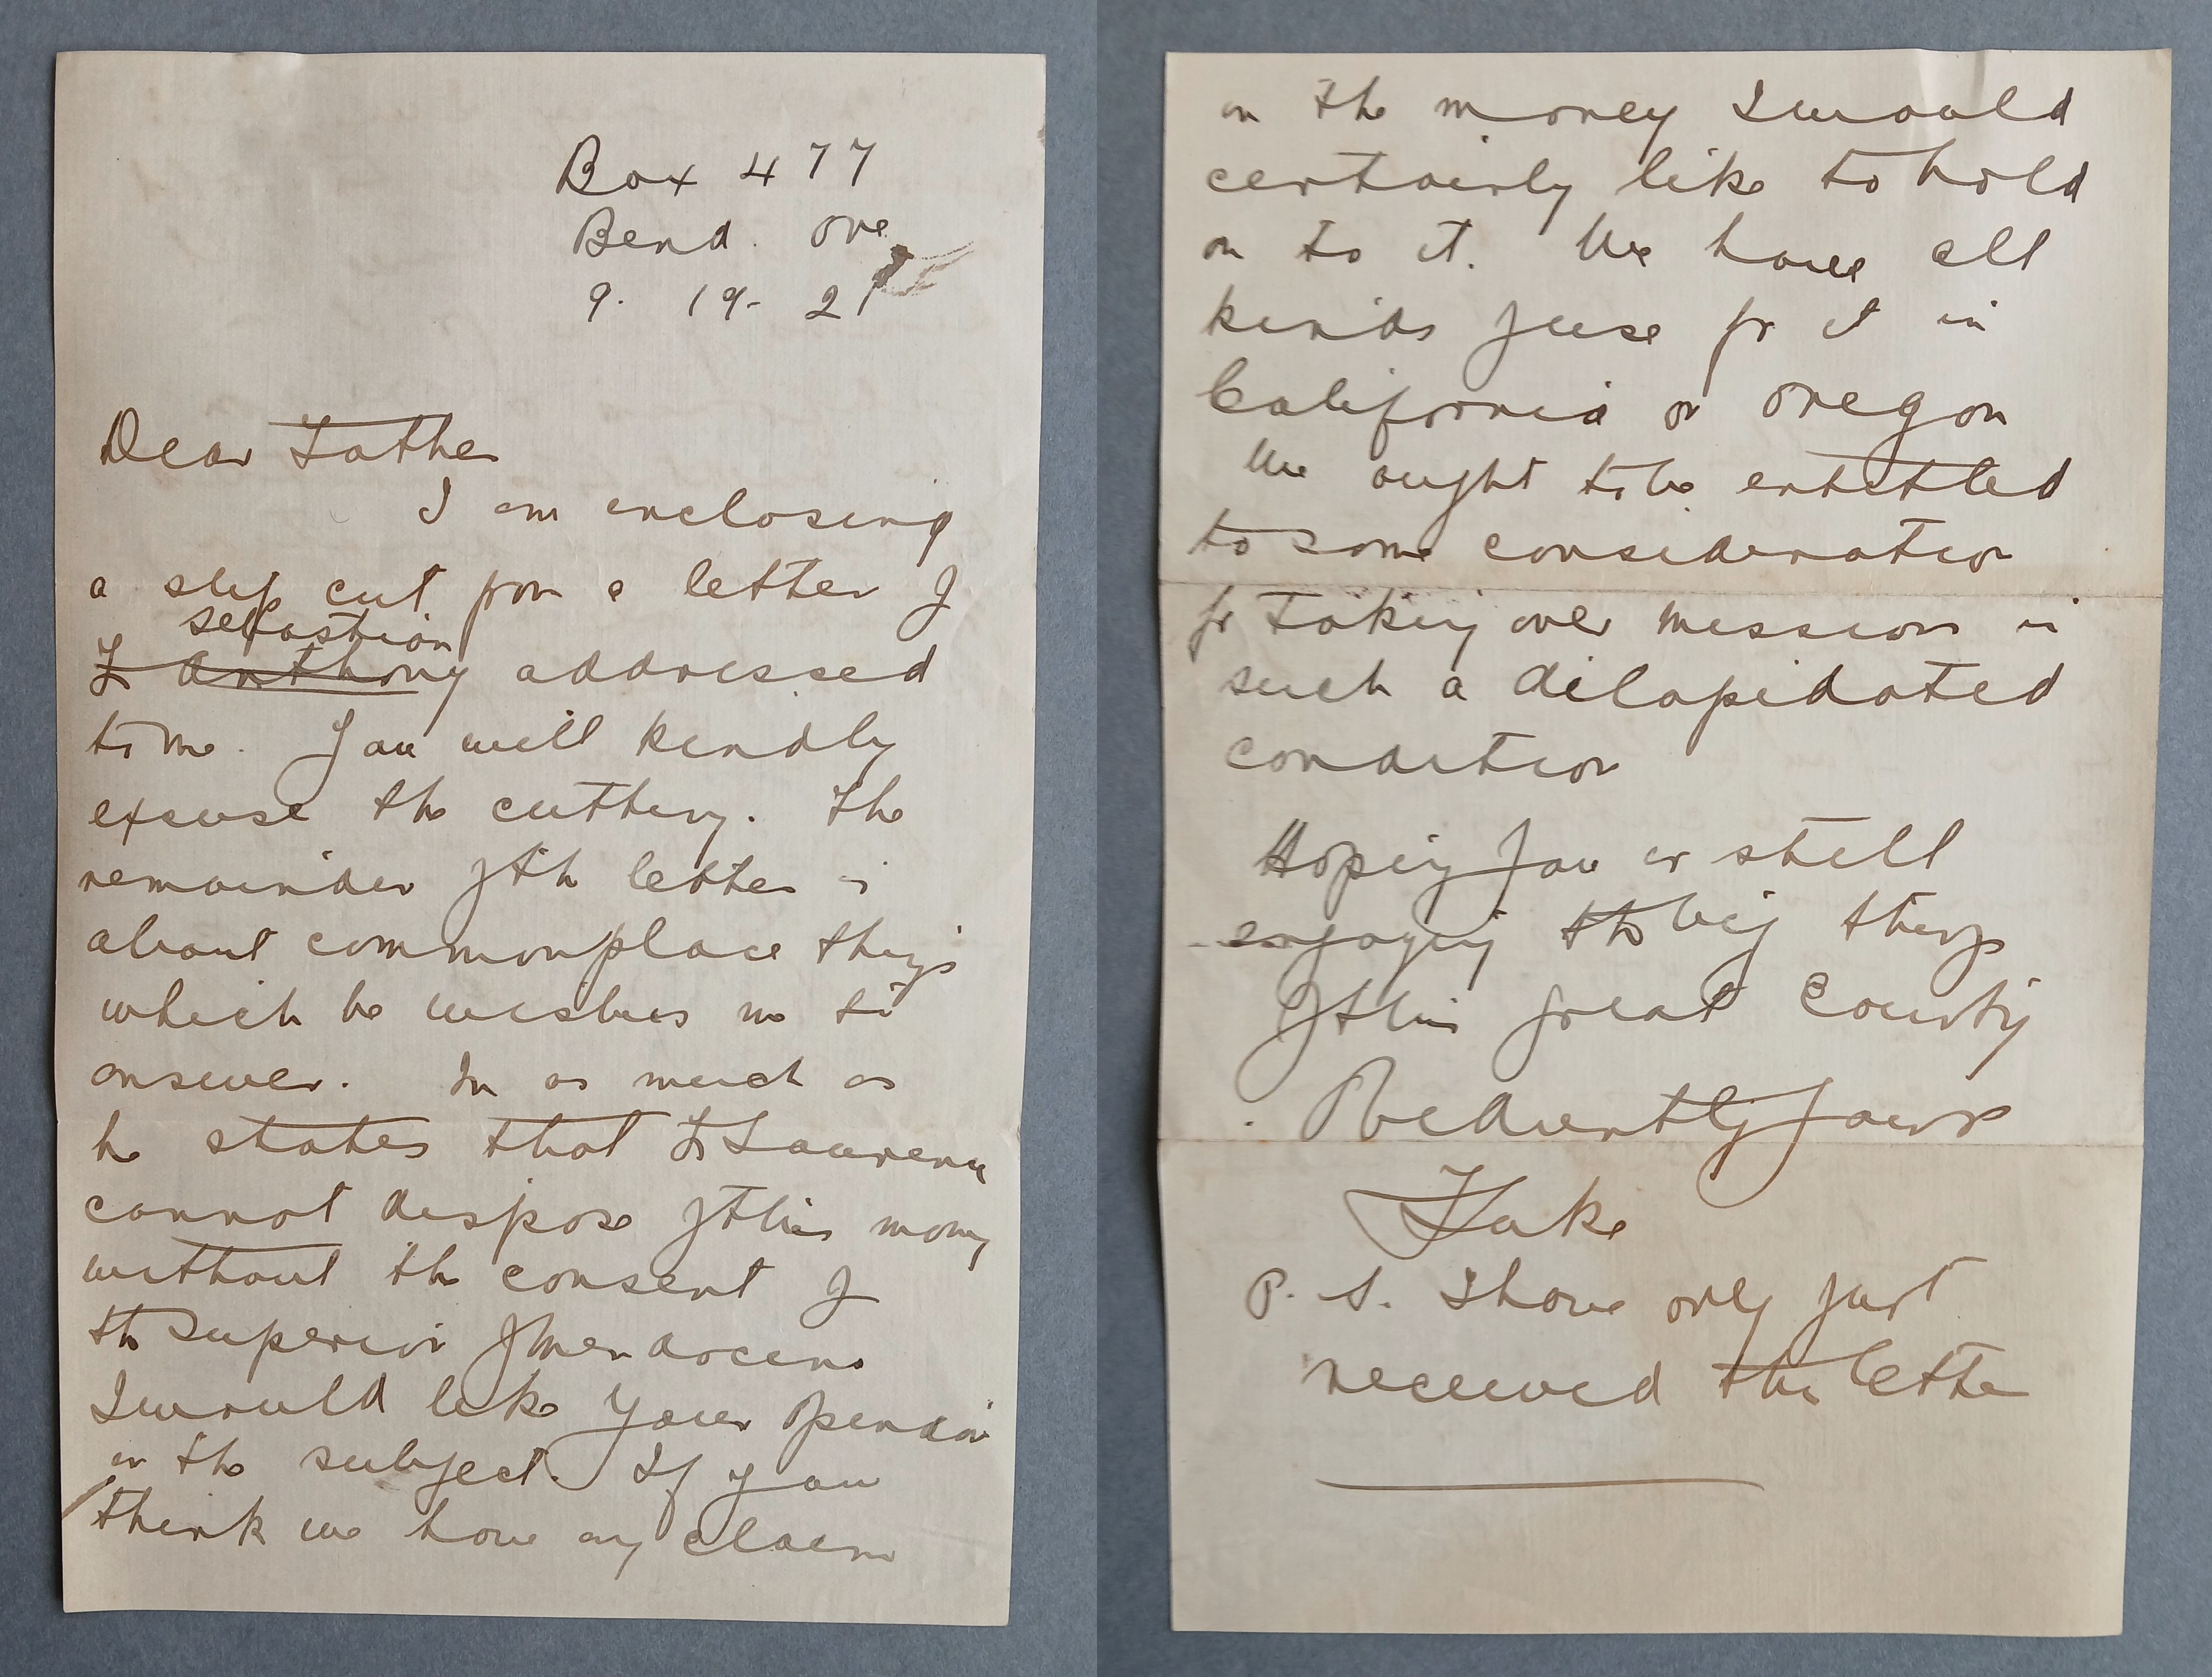 Box 477
Bend. Ore
9. 19- 21
Dear Father
I am enclosing
a slip cut from a letter of
Sebastian
Fr Anthony addressed
to me. You will kindly
excuse the cutting. The
remainder of the letter is
about commonplace things
which he wishes me to
answer. In as much as
he states that Fr Lawrence
cannot dispose of this money
without the consent of
the superior of Mendocino
I would like your opinion
on the subject. If you
think we have any claim
on the money I would
certainly like to hold
on to it. We have all
kinds of use for it in
California or Oregon
We ought to be entitled
to some consideration
for taking over mission in
such a dilapidated
condition
Hoping you are still
enjoying the big things
of this great County
Obediently Yours
Luke
P. S. I have only just
received the letter